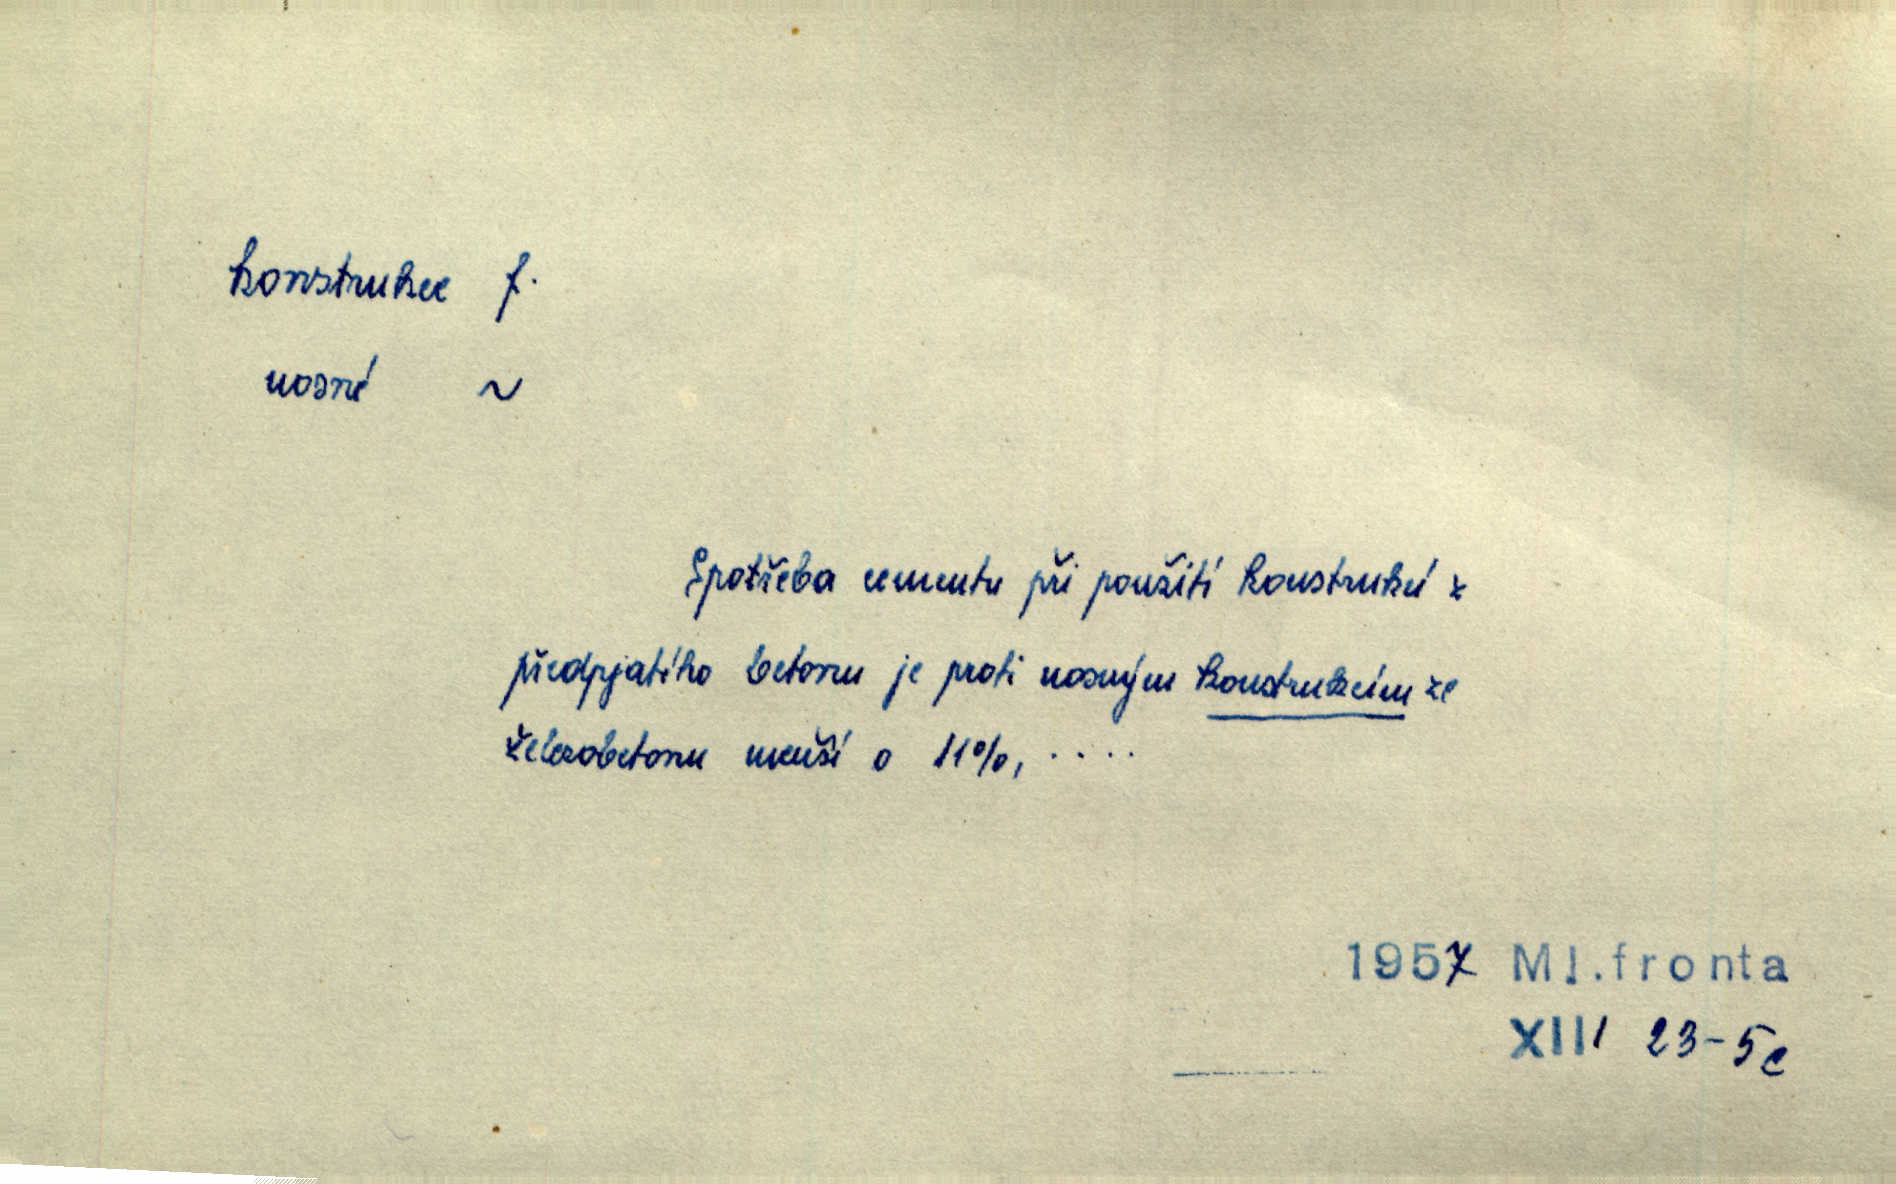 konstrukce f.
nosné ~
Spotřeba cementu při použití konstrukcí z
předpjatého betonu je proti nosným konstrukcím ze
železobetonu menší o 11%, ....
1957 Ml.fronta
XIII 23-5c